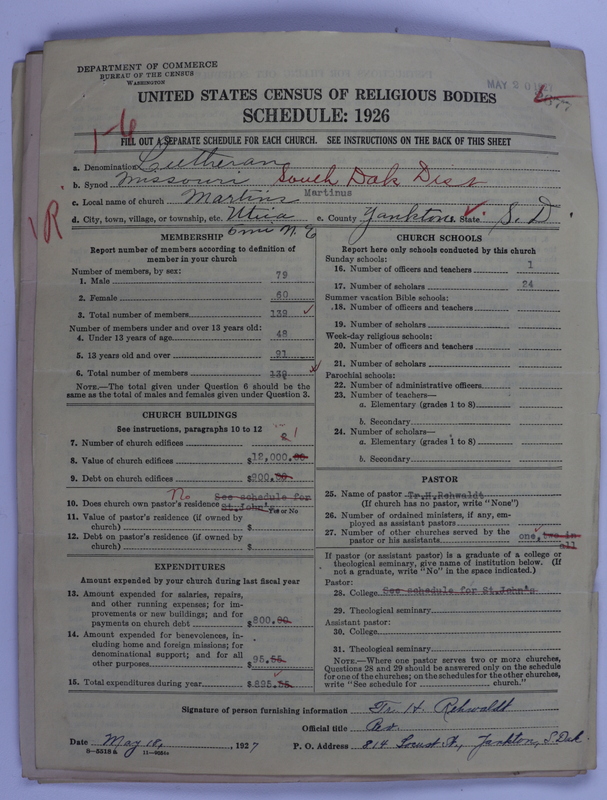 DEPARTMENT OF COMMERCE
BUREAU OF THE CENSUS
WASHINGTON
MAY 20 1927
UNITED STATES CENSUS OF RELIGIOUS BODIES
SCHEDULE: 1926
1-6
FILL OUT A SEPARATE SCHEDULE FOR EACH CHURCH. SEE INSTRUCTIONS ON THE BACK OF THIS SHEET
a. Denomination Lutheran
b. Synod Missouri South Dak Dist
c. Local name of church Martins Martinus
d. City, town, village, or township, etc. Utica e. County Yankton f. State S. D.
6 mi N. E
1R
MEMBERSHIP
Report number of members according to definition of member in your church
Number of members, by sex:
1. Male 79
2. Female 60
3. Total number of members 139
Number of members under and over 13 years old:
4. Under 13 years of age 48
5. 13 years old and over 91
6. Total number of members 139
NOTE.—The total given under Question 6 should be the same as the total of males and females given under Question 3.
CHURCH BUILDINGS
See instructions, paragraphs 10 to 12
7. Number of church edifices 1
8. Value of church edifices $12,000.00
9. Debt on church edifices $200.00
10. Does church own pastor's residence No See schedule for St.John's Yes or No
11. Value of pastor's residence (if owned by church) $
12. Debt on pastor's residence (if owned by church) $
EXPENDITURES
Amount expended by your church during last fiscal year
13. Amount expended for salaries, repairs, and other running expenses; for improvements or new buildings; and for payments on church debt $800.00
14. Amount expended for benevolences, including home and foreign missions; for denominational support; and for all other purposes $95.55
15. Total expenditures during year $895.55
CHURCH SCHOOLS
Report here only schools conducted by this church
Sunday schools:
16. Number of officers and teachers 1
17. Number of scholars 24
Summer vacation Bible schools:
18. Number of officers and teachers
19. Number of scholars
Week-day religious schools:
20. Number of officers and teachers
21. Number of scholars
Parochial schools:
22. Number of administrative officers
23. Number of teachers—
a. Elementary (grades 1 to 8)
b. Secondary
24. Number of scholars—
a. Elementary (grades 1 to 8)
b. Secondary
PASTOR
25. Name of pastor Tr.H.Rehwaldt
(If church has no pastor, write "None")
26. Number of ordained ministers, if any, employed as assistant pastors
27. Number of other churches served by the pastor or his assistants one, two in all
If pastor (or assistant pastor) is a graduate of a college or theological seminary, give name of institution below. (If not a graduate, write "No" in the space indicated.)
Pastor:
28. College See schedule for St.John's
29. Theological seminary
Assistant pastor:
30. College
31. Theological seminary
NOTE.—Where one pastor serves two or more churches, Questions 28 and 29 should be answered only on the schedule for one of the churches; on the schedules for the other churches, write "See schedule for church."
Signature of person furnishing information Tr. H. Rehwaldt
Official title
Date May 18, 1927 P. O. Address 814 Locust St., Yankton, S. Dak.